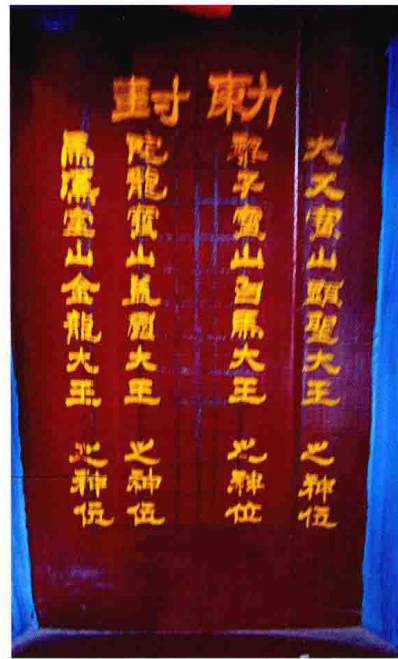 勅封
大寳山顯聖大王 之神位
黎子寳山白馬大王 之神位
陀龍寳山蓋國大王 之神位
馬山金龍大王 之神位